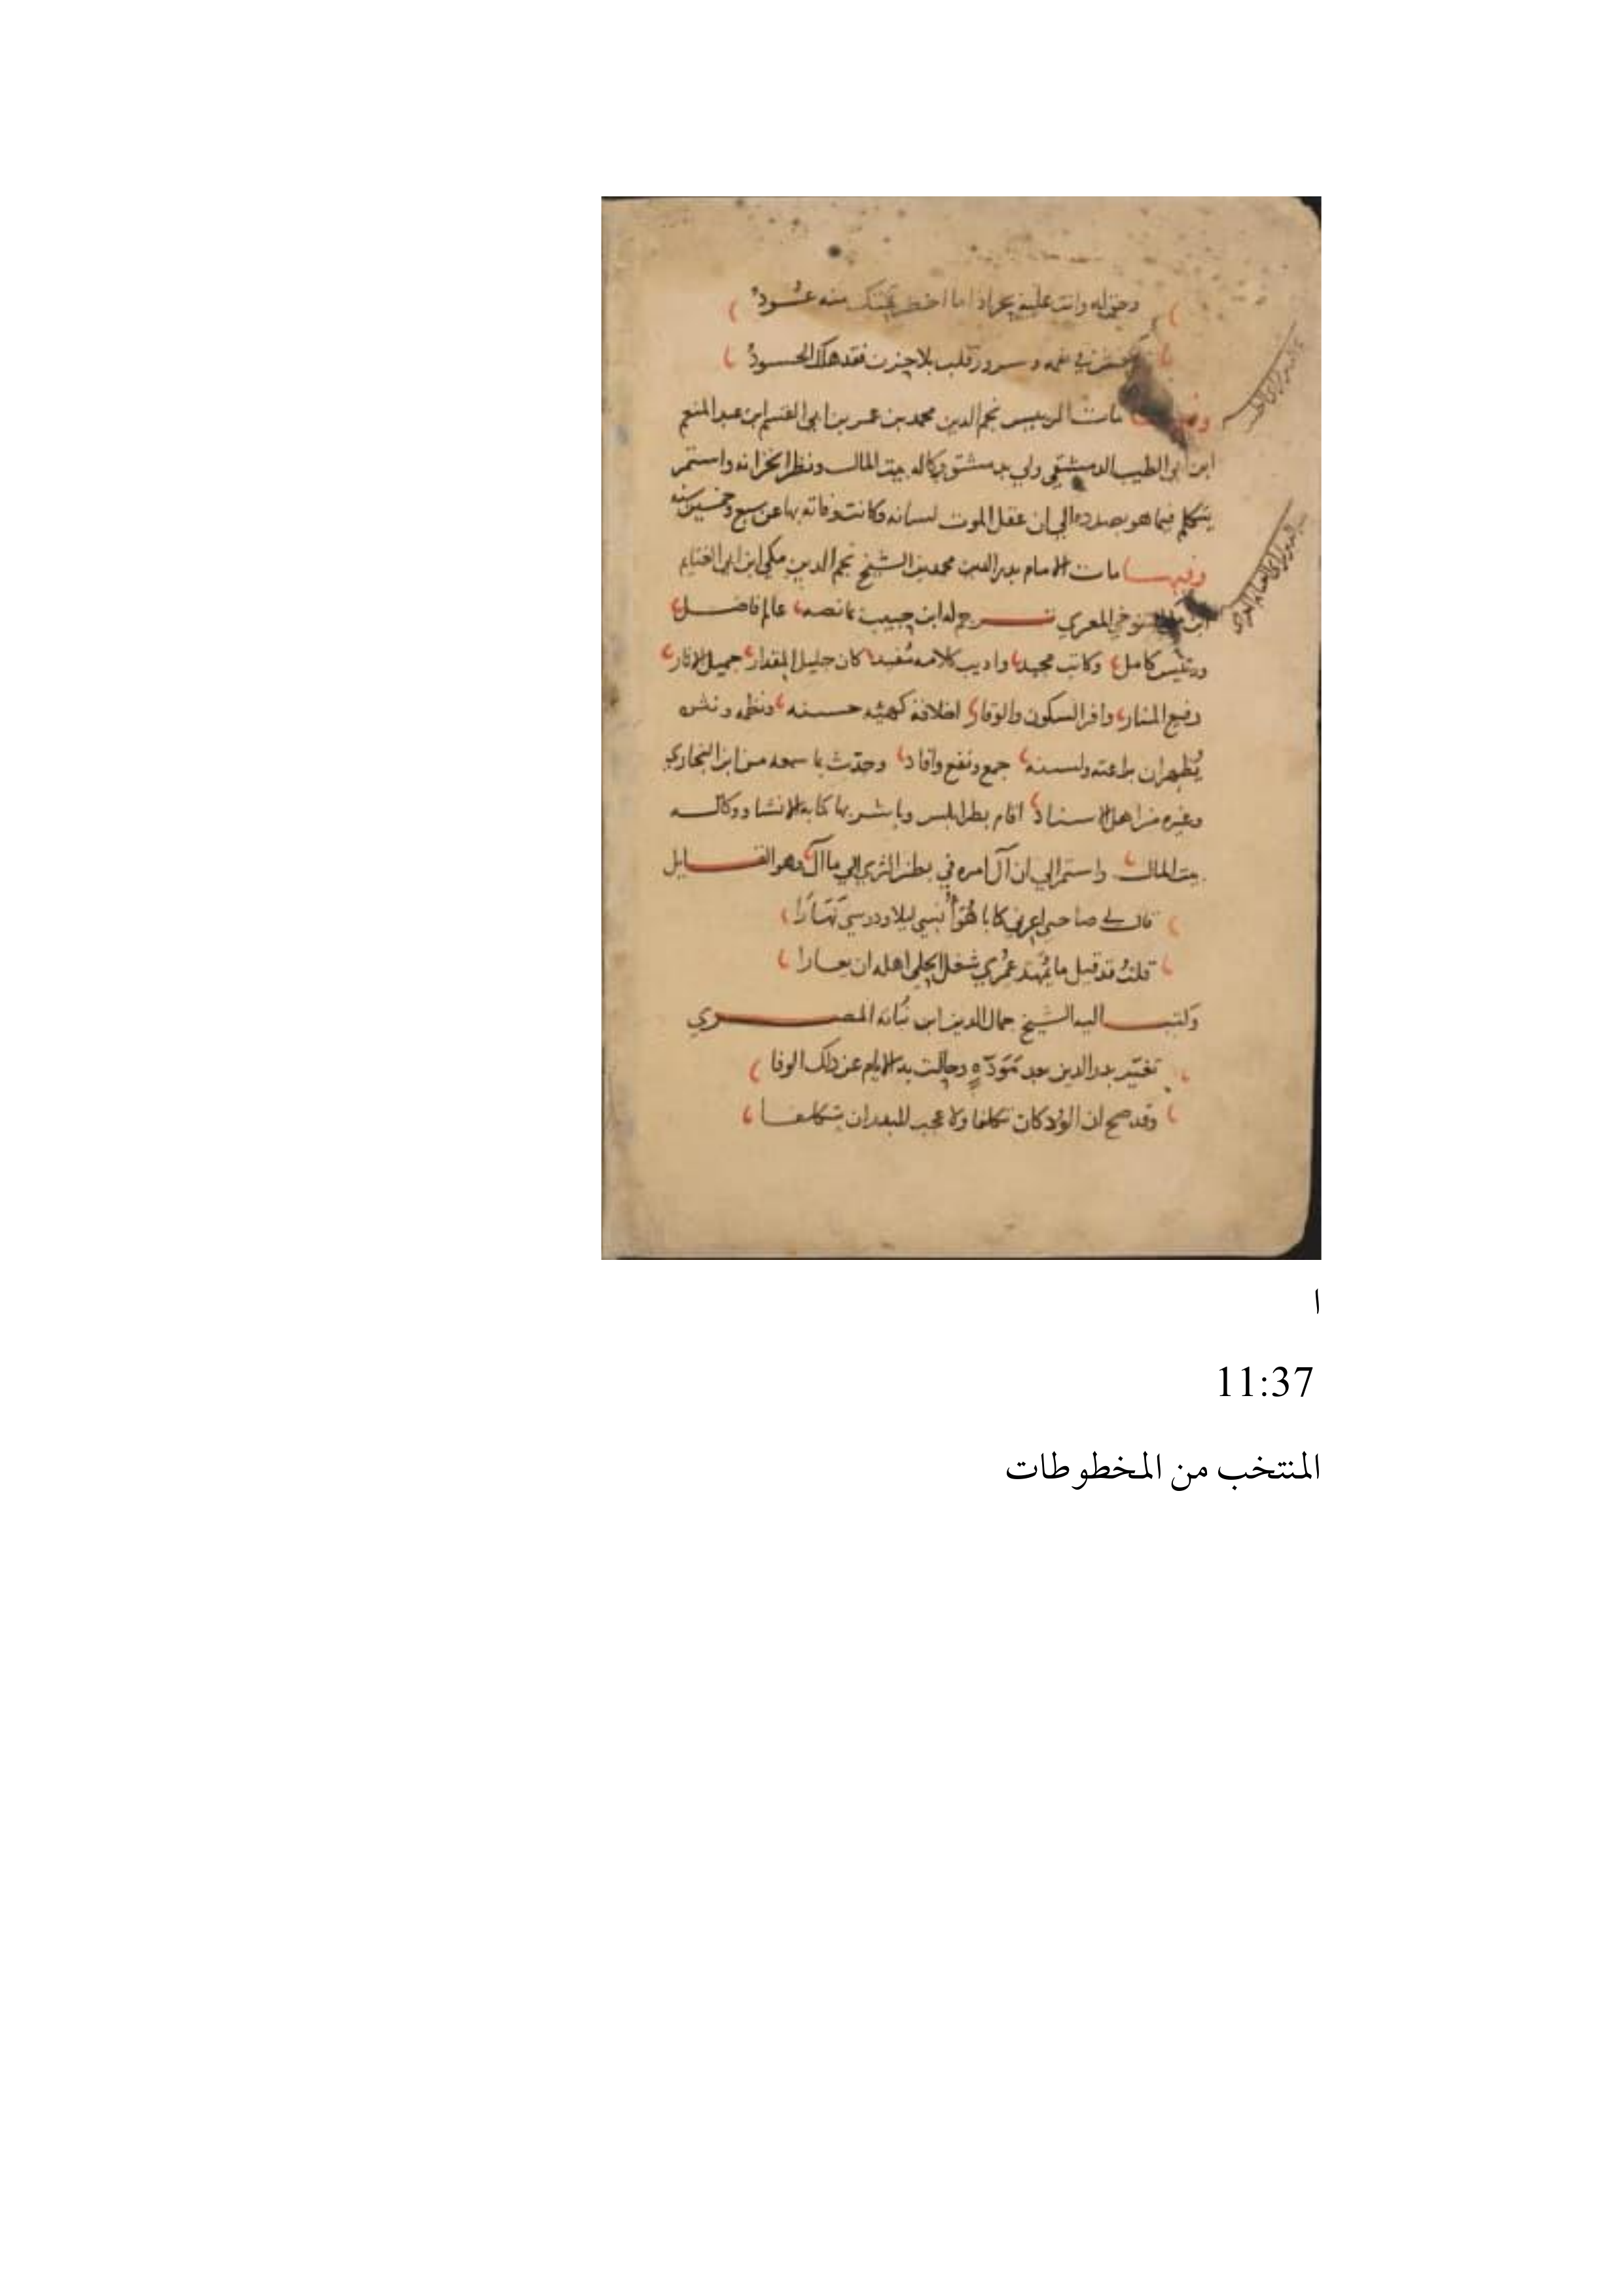 وانت عليه
وسرور قلب بلا حزن فقد هلك الحسودُ
وفيها مات الرييس نجم الدين محمد بن عمر بن ابي القسم ابن عبد المنعم
ابن ابي الطيب الدمشقي ولي بدمشق وكاله بيت المال ونظر الخزانه واستمر
يتكلم فيما هو بصدده الي ان عقل الموت لسانه وكانت وفاته بها عن سبع وخمسين سنه
وفيها مات الامام بدر الدين محمد بن الشيخ نجم الدين مكي ابن ابي الغنايم
التنوخي المعري ترجم له ابن حبيب بما نصه عالم فاضل
ورئيس كامل وكاتب مجيد واديب كلامه مُفيد كان جليل المقدار جميل الاثار
رفيع المنار وافر السكون والوقار اخلاقه كهيئه حسنه ونظمه ونثره
يُظهران براعته ولسنه جمع ونفع وافاد وحدّث بما سمعه من ابن البخاري
وغيره من اهل الاسناد اقام بطرابلس وباشر بها كتابه الانشا ووكاله
بيت المال واستمر الي ان آل امره في بطن الثري الي ما آل وهو القايل
قال لي صاحبي اعرني كتابا هُوَ أُنسي ليلا ودرسي نَهَارَا
قلتُ قد قيل ما عُمري شغل الحلي اهله ان يعارا
وكتب اليه الشيخ جمال الدين ابن نُباته المصري
تغيّر بدر الدين بعد مَوَدّهٍ وحالت به الايام عن ذلك الوفا
وقد صح ان الوُد كان تكلفا ولا عجب للبدر ان يتكلفا
ا
11:37
المنتخب من المخطوطات